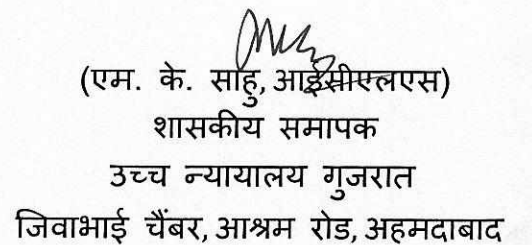 (एम. के. साहु, आईसीएलएस)
शासकीय समापक
उच्च न्यायालय गुजरात
जिवाभाई चैंबर, आश्रम रोड, अहमदाबाद